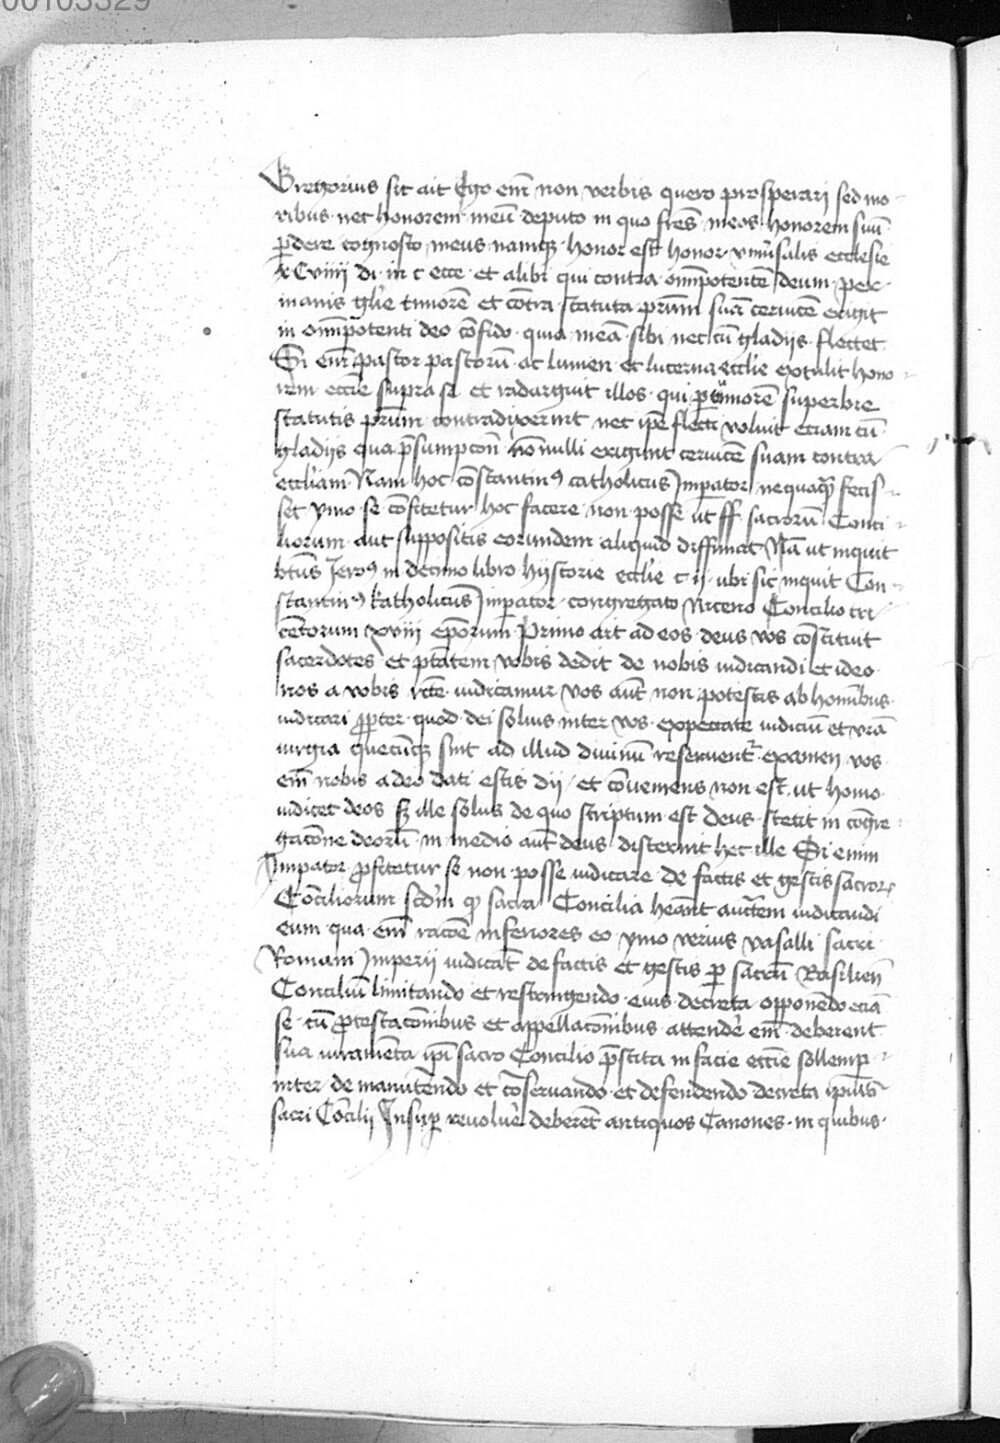 00103329
Gregorius sic ait Ego em̄ non verbis quero prosperari sed mo
ribus nec honorem meū deputo in quo fr̄es meos honorem suū
ꝑdere cognosco meus namqꝫ honor est honor vniu̅salis ecclesie
xCviiij di. in c ecce et alibi qui contra om̅ipotentē deum per
inanis gl̄ie timorē et cōtra statuta pr̄um suā ceruicē erigit
in om̅ipotenti deo cōfido quia meā sibi nec cū gladijs flectet
Si em̄ pastor pastorū ac lumen et lucerna eccl̄ie extulit hono
rem eccl̄ie supra se et redarguit illos qui superbie
statutis pr̄um contradixerint nec ip̄e flecti voluit eciam cū
gladijs qua p̄sumpcōn nōnulli erigunt ceruicē suam contra
eccl̄iam Nam hoc cōstantinꝰ catholicus Imꝑator nequaqᷓ fecis
set ymo se cōfitetur hoc facere non posse ut ff sacrorū Conci
liorum aut suppositis eorundem aliquid diffiniat Nā ut inquit
bt̄us Jeroꝰ in decimo libro hystorie eccl̄ie c ij ubi sic inquit Con
stantinꝰ katholicus Imꝑator congregato Niceno Concilio tri
cētorum xviij ep̄orum Primo ait ad eos deus vos cōstituit
sacerdotes et ptātem vobis dedit de nobis iudicandi et ideo
nos a vobis rc̄te iudicamur vos aūt non potestis ab hom̅ibus
iudicari ꝓpter quod dei solius inter vos expectate iudiciū et vr̄a
iurgia quecūqꝫ sint ad illud diuinū reseruent᷑ examen vos
em̄ nobis a deo dati estis dij et cōueniens non est ut homo
iudicet deos sꝫ ille solus de quo scriptum est deus stetit in cōgre
gacōne deorū in medio aūt deus discernit hec ille Si enim
Imꝑator ꝓfitetur se non posse iudicare de factis et gestis sacroꝝ
Cōciliorum scd̄m qꝫ sacra Concilia hēant auct̄em iudicandi
eum qua em̄ racōe inferiores eo ymo verius vasalli sacri
Romani Imperij iudicāt de factis et gestis ꝑ sacrū Basilieñ
Conciliū limitando et restringendo eius decreta opponēdo eciā
se cū ꝓtestacōnibus et appellacōnibus attendēr em̄ deberent
sua iuramēta ip̄i sacro Concilio p̄stita in facie eccl̄ie sollemp
niter de manutēndo et cōseruando et defendendo decreta ip̄ius
sacri Cōcilij Insuꝑ reuoluēr deberēt antiquos Canones in quibus